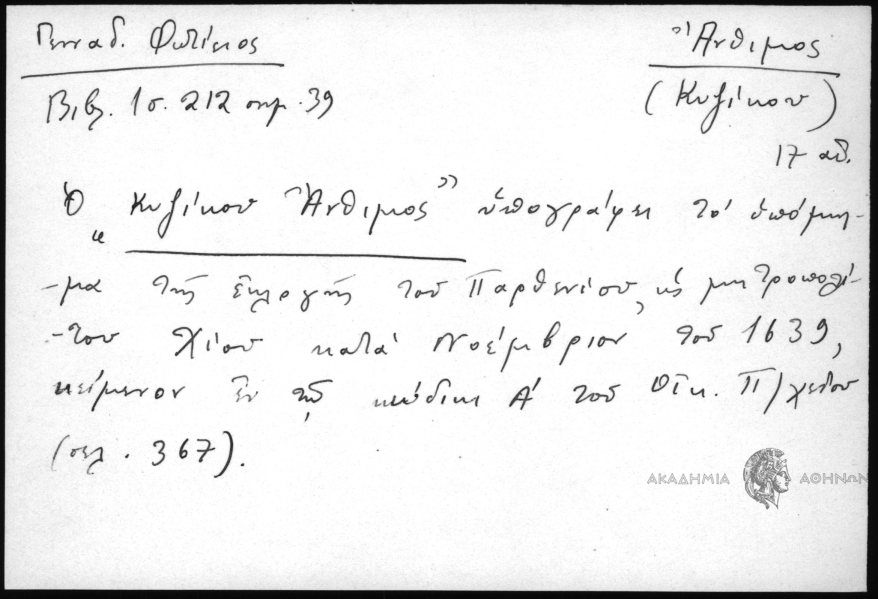 Γενναδ. Φωτίειος
Ἄνθιμος
Βιβλ. 1 σ. 212 σημ. 39
(Κυζίκου)
17 αἰ.
Ὁ „Κυζίκου Ἄνθιμος” ὑπογράφει τό ὑπόμνη-
-μα τῆς ἐκλογῆς τοῦ Παρθενίου, ὡς μητροπολί-
-του Χίου κατά Νοέμβριον τοῦ 1639,
κείμενον ἐν τῷ κώδικι Α' τοῦ Οἰκ. Π/χείου
(σελ. 367).
ΑΚΑΔΗΜΙΑ ΑΘΗΝΩΝ